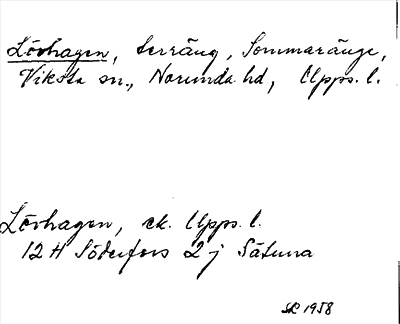 Lövhagen, terräng, Sommaränge,
Viksta sn., Norunda hd, Upps. l.
Lövhagen, ek. Upps. l.
12 H Söderfors 2 j Sätuna
1958